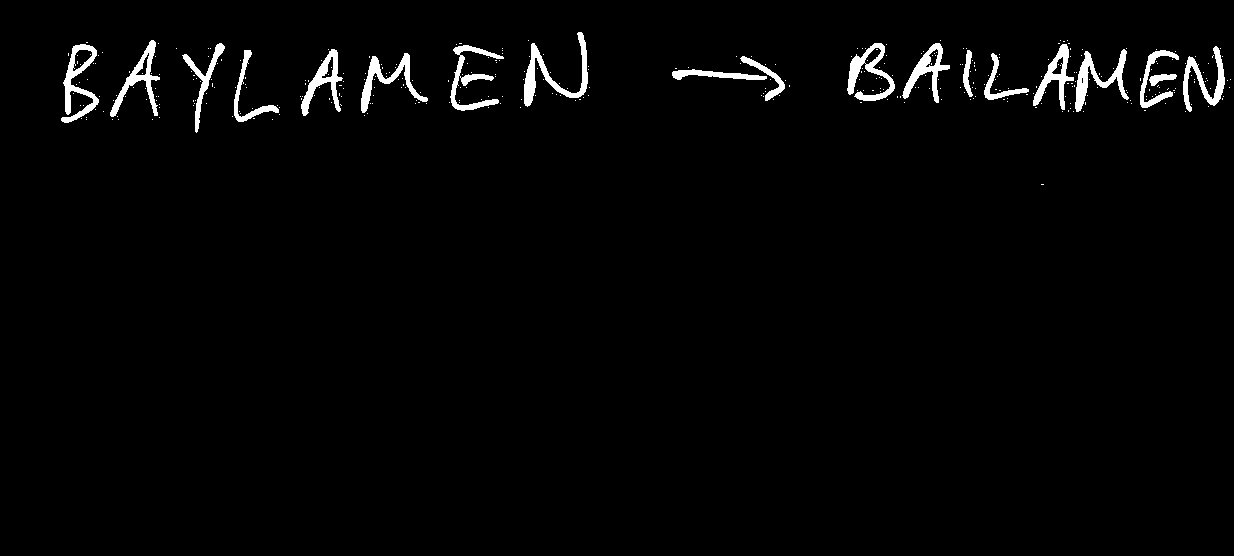 BAYLAMEN → BAILAMEN